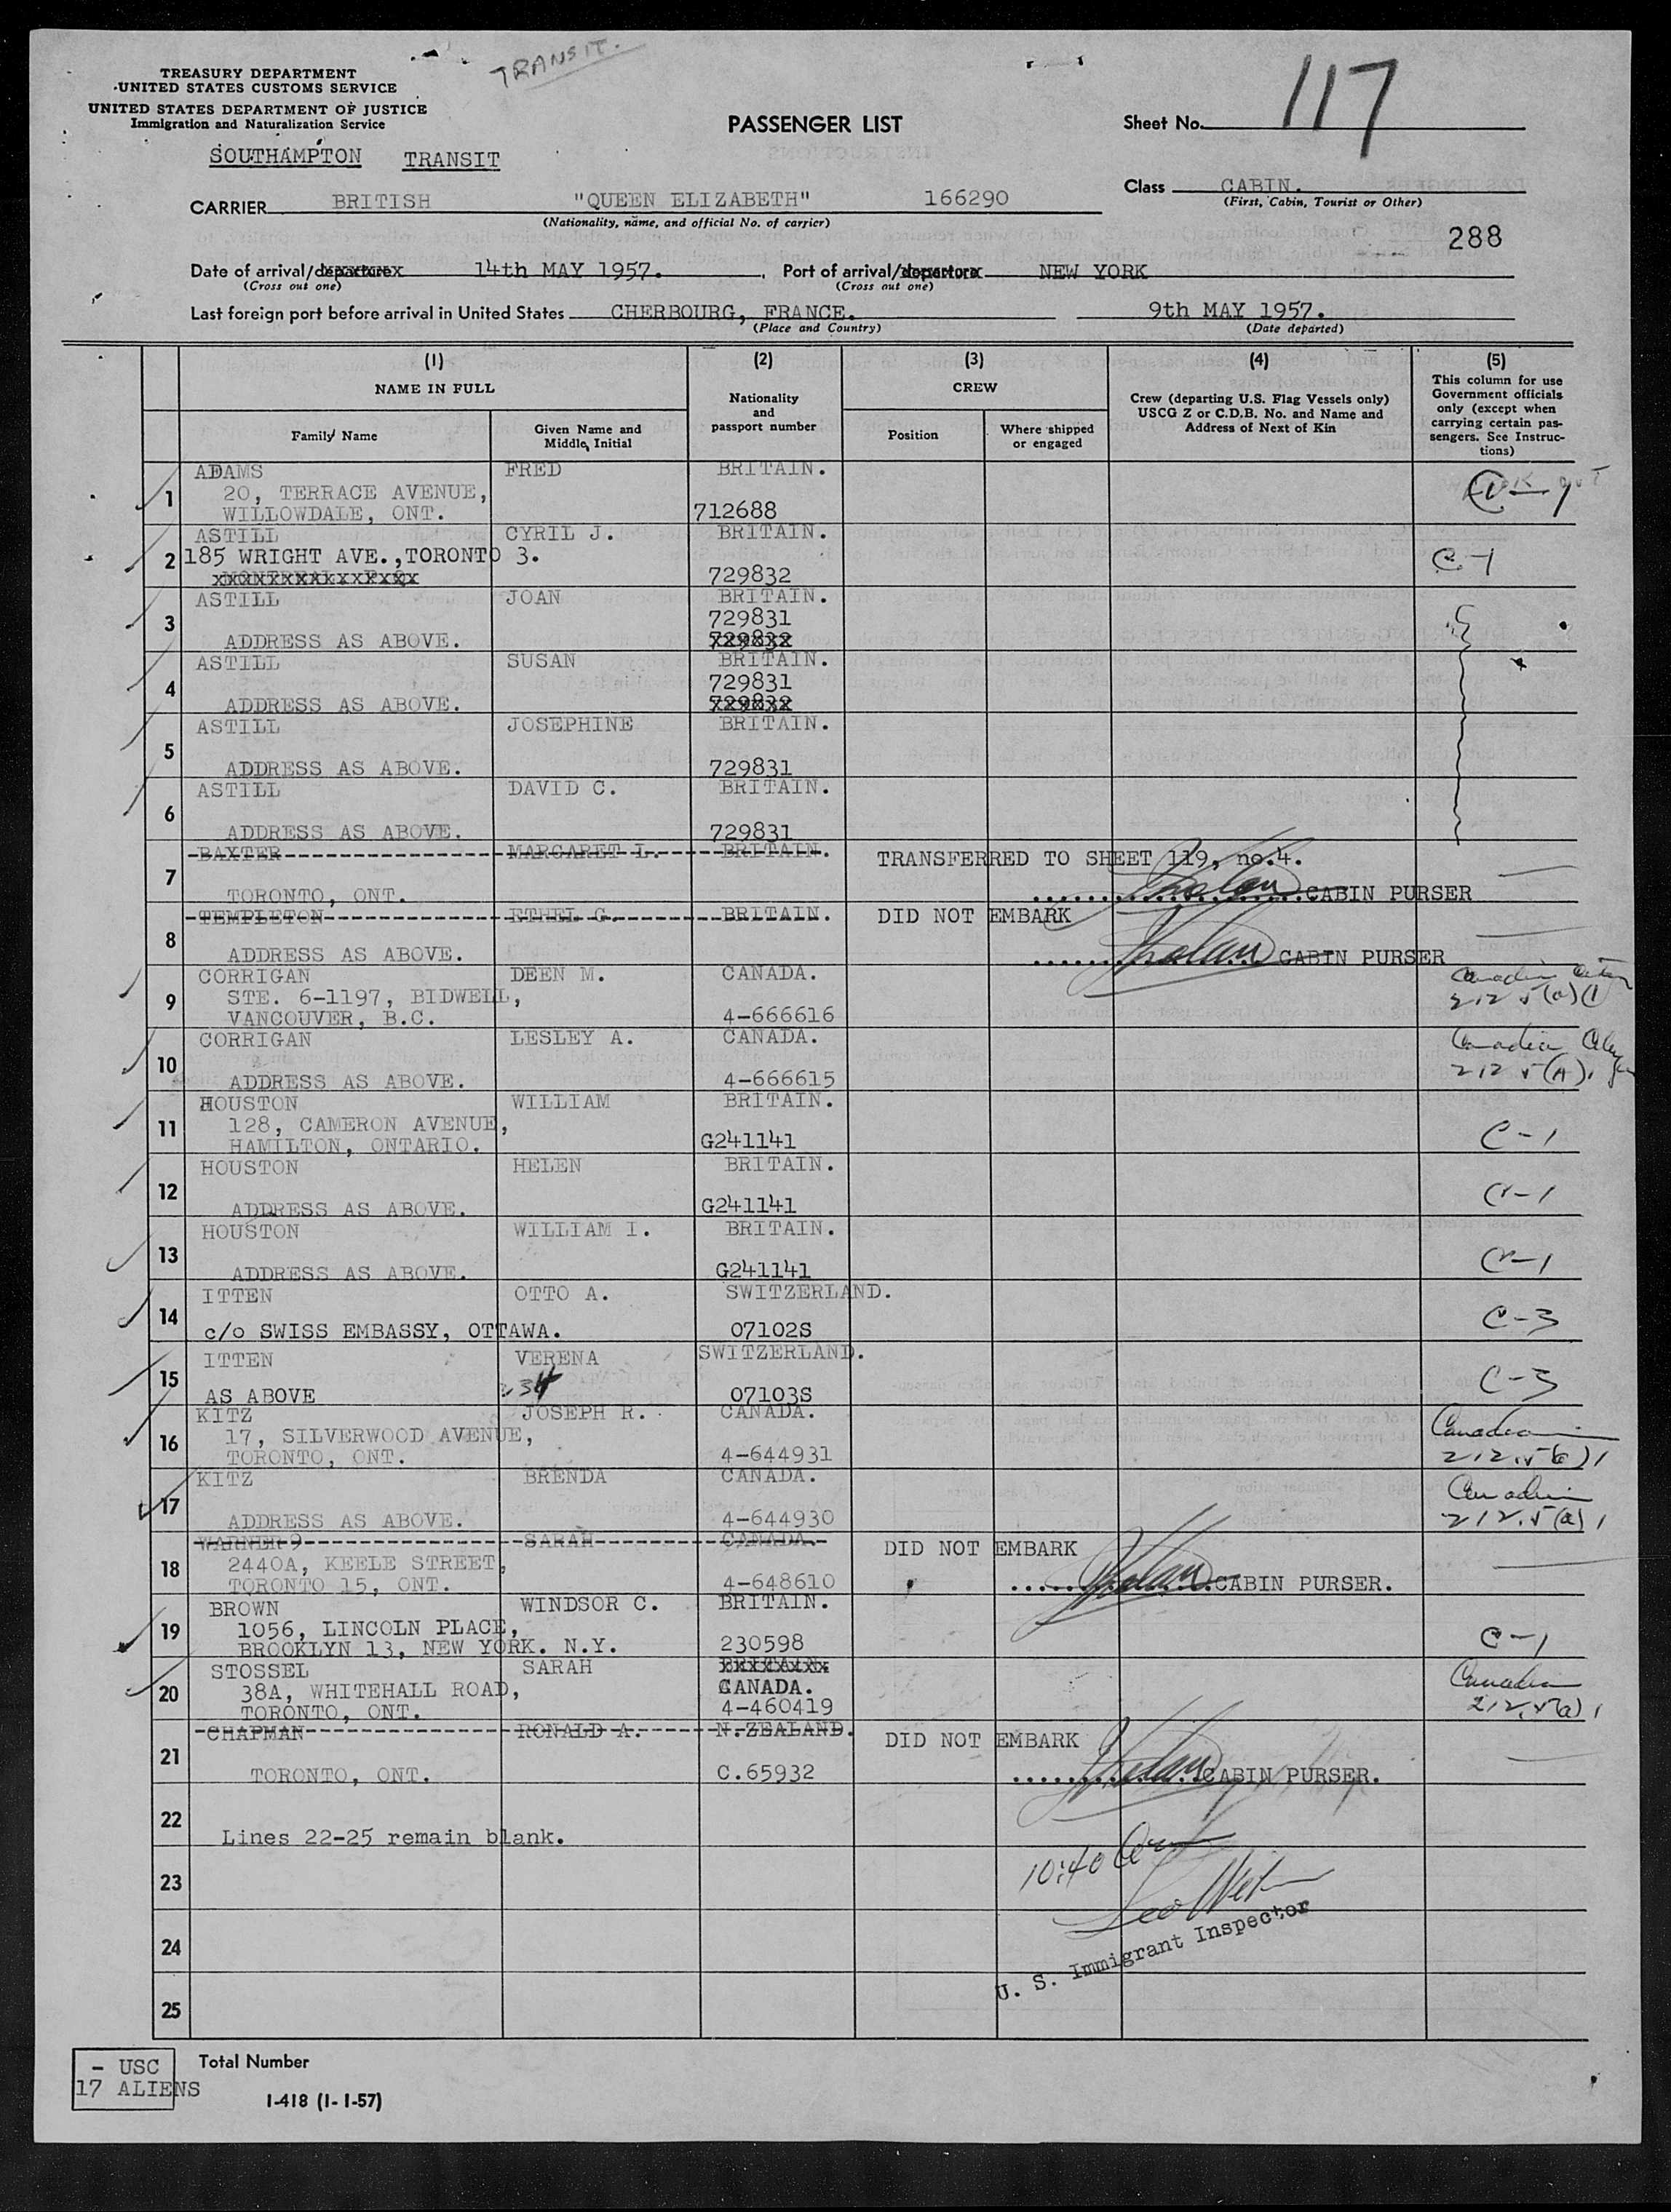 TRANSIT.
TREASURY DEPARTMENT
UNITED STATES CUSTOMS SERVICE
UNITED STATES DEPARTMENT OF JUSTICE
Immigration and Naturalization Service
SOUTHAMPTON TRANSIT
PASSENGER LIST
Sheet No. 117
Class CABIN.
(First, Cabin, Tourist or Other)
CARRIER BRITISH "QUEEN ELIZABETH" 166290
(Nationality, name, and official No. of carrier)
288
Date of arrival/departure 14th MAY 1957. , Port of arrival/departure NEW YORK
(Cross out one) (Cross out one)
Last foreign port before arrival in United States CHERBOURG, FRANCE. 9th MAY 1957.
(Place and Country) (Date departed)
(1) (2) (3) (4) (5)
NAME IN FULL
Family Name
Given Name and
Middle Initial
Nationality
and
passport number
CREW
Position
Where shipped
or engaged
Crew (departing U.S. Flag Vessels only)
USCG Z or C.D.B. No. and Name and
Address of Next of Kin
This column for use
Government officials
only (except when
carrying certain pas-
sengers. See Instruc-
tions)
1 ADAMS FRED BRITAIN.
20, TERRACE AVENUE,
WILLOWDALE, ONT. 712688
2 ASTILL CYRIL J. BRITAIN.
185 WRIGHT AVE.,TORONTO 3. C-1
729832
3 ASTILL JOAN BRITAIN.
729831
ADDRESS AS ABOVE. 729832
4 ASTILL SUSAN BRITAIN.
729831
ADDRESS AS ABOVE. 729832
5 ASTILL JOSEPHINE BRITAIN.
ADDRESS AS ABOVE. 729831
6 ASTILL DAVID C. BRITAIN.
ADDRESS AS ABOVE. 729831
7 BAXTER MARGARET L. BRITAIN. TRANSFERRED TO SHEET 119, no.4.
TORONTO, ONT. CABIN PURSER
8 TEMPLETON ETHEL G. BRITAIN. DID NOT EMBARK
ADDRESS AS ABOVE. CABIN PURSER
9 CORRIGAN DEEN M. CANADA.
STE. 6-1197, BIDWELL,
VANCOUVER, B.C. 4-666616
10 CORRIGAN LESLEY A. CANADA. Canadian
ADDRESS AS ABOVE. 4-666615
11 HOUSTON WILLIAM BRITAIN.
128, CAMERON AVENUE, C-1
HAMILTON, ONTARIO. G241141
12 HOUSTON HELEN BRITAIN. C-1
ADDRESS AS ABOVE. G241141
13 HOUSTON WILLIAM I. BRITAIN. C-1
ADDRESS AS ABOVE. G241141
14 ITTEN OTTO A. SWITZERLAND. C-3
c/o SWISS EMBASSY, OTTAWA. 07102S
15 ITTEN VERENA SWITZERLAND. C-3
AS ABOVE 07103S
16 KITZ JOSEPH R. CANADA. Canadian
17, SILVERWOOD AVENUE,
TORONTO, ONT. 4-644931 212.5(a)1
17 KITZ BRENDA CANADA. Canadian
ADDRESS AS ABOVE. 4-644930 212.5(a)1
18 WARNER SARAH CANADA. DID NOT EMBARK
2440A, KEELE STREET,
TORONTO 15, ONT. 4-648610 CABIN PURSER.
19 BROWN WINDSOR C. BRITAIN.
1056, LINCOLN PLACE,
BROOKLYN 13, NEW YORK. N.Y. 230598 C-1
20 STOSSEL SARAH BRITAIN.
38A, WHITEHALL ROAD, CANADA. Canadian
TORONTO, ONT. 4-460419 212.5(a)1
21 CHAPMAN RONALD A. N.ZEALAND. DID NOT EMBARK
TORONTO, ONT. C.65932 CABIN PURSER.
22 Lines 22-25 remain blank.
23 10:40
24 U. S. Immigrant Inspector
25
- USC
17 ALIENS
Total Number
I-418 (1-1-57)